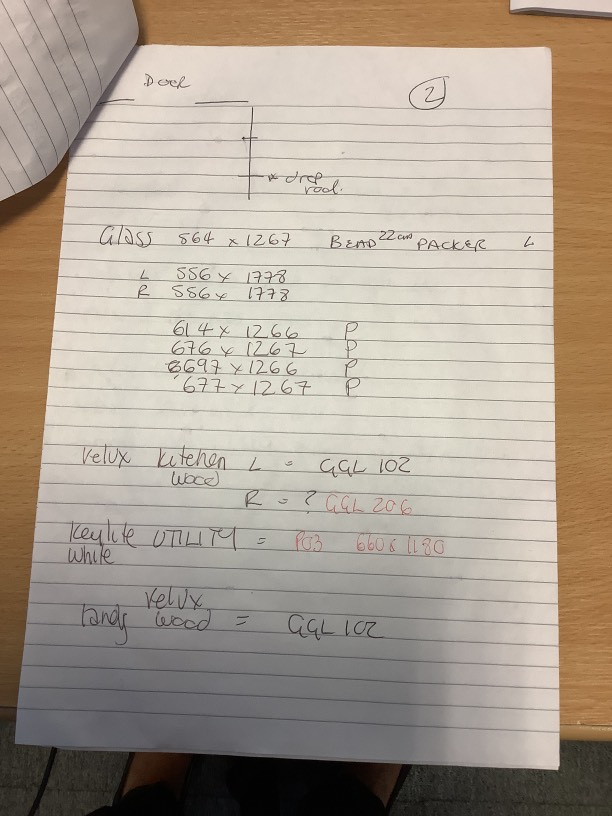 Door
2
* drop
rod.
Glass 564 x 1267 BEAD 22cm PACKER L
L 556 x 1778
R 556 x 1778
614 x 1266 P
676 x 1267 P
697 x 1266 P
677 x 1267 P
Velux kitchen L = GGL 102
wood
R = ? GGL 206
Keylite UTILITY = P03 660 x 1180
white
Velux
wood = GGL 102